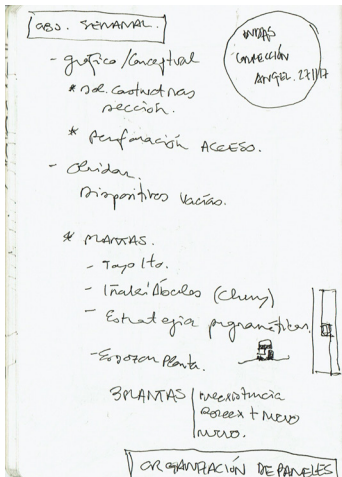 OBJ. SEMANAL.
NOTAS
CORRECCIÓN
ANGEL. 27/1/17
- gráfico/Conceptual
* Sol. Constructivas
sección.
* Perforación ACCESO.
- Olvidar.
Dispositivos Vacíos.
* PLANTAS.
- Toyo Ito.
- Iñaki Ábalos
- Estrategias programáticas.
- Esbozar Planta.
3 PLANTAS
preexistencia
Preex + nuevo
nuevo.
ORGANIZACIÓN DE PANELES